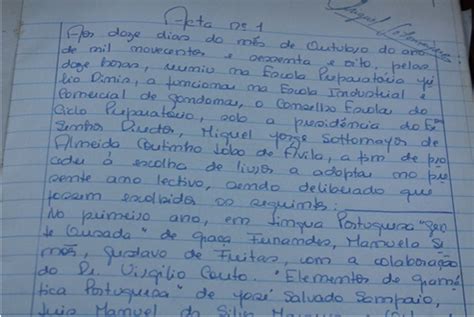 Acta nº 1
Aos doze dias do mês de Outubro do ano
de mil novecentos e sessenta e oito, pelas
doze horas, reuniu na Escola Preparatória Jú
lio Dinis, a funcionar na Escola Industrial e
Comercial de Gondomar, o Conselho Escolar do
Ciclo Preparatório, sob a presidência do Exº
Senhor Director, Miguel Jorge Sottomayor de
Almeida Coutinho Lobo de Ávila, a fim de pro
ceder à escolha de livros a adoptar no pre
sente ano lectivo, sendo deliberado que
fossem escolhidos os seguintes:
No primeiro ano, em Língua Portuguesa "Gen
te Ousada" de Graça Fernandes, Manuela Si
mões, Gustavo de Freitas, com a colaboração
do Dr. Virgílio Couto. "Elementos de gramá
tica Portuguesa" de José Salvado Sampaio,
Luis Manuel da Silva